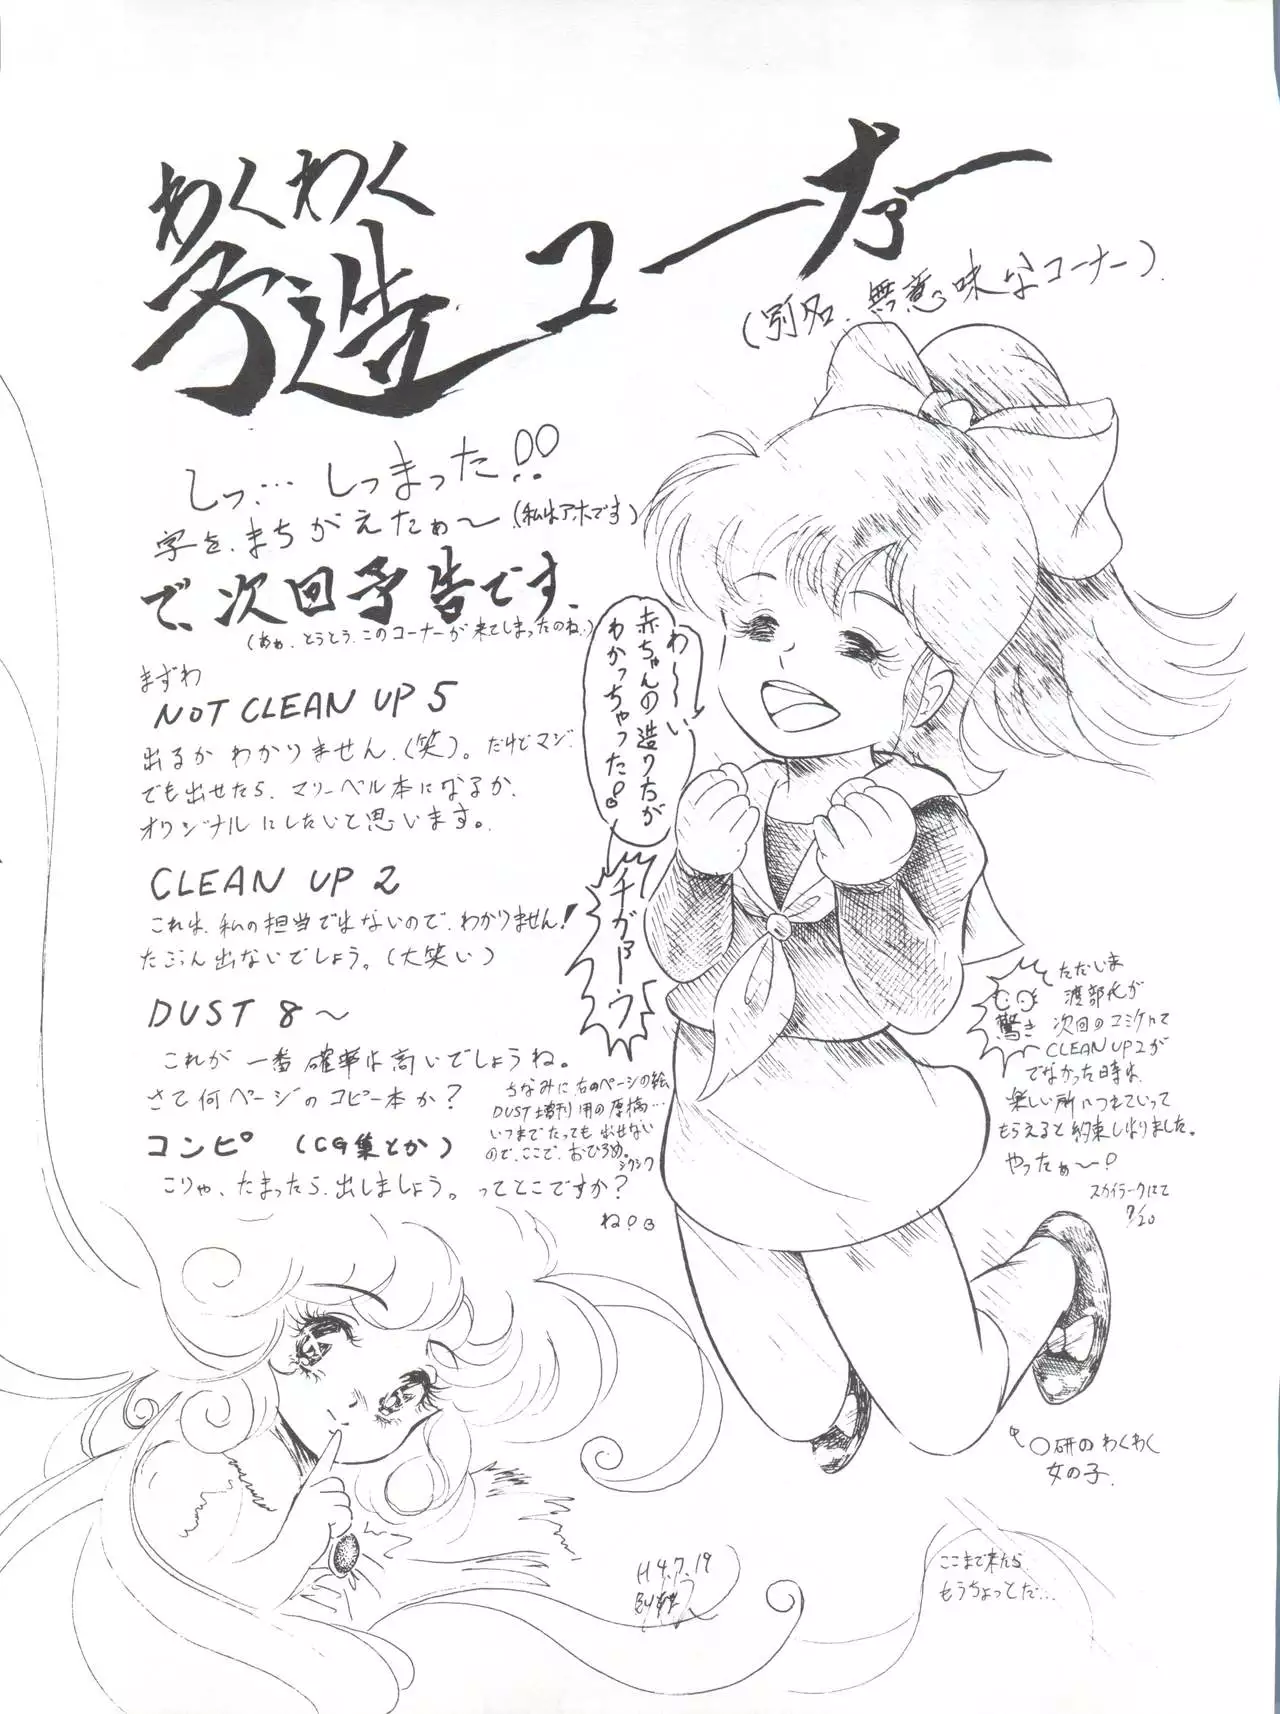 わくわく
予造コーナァー
(別名、無意味なコーナー)
しっ…しつまった!!
字を、まちがえたぁ〜(私はアホです)
で、次回予告です、
(あぁ、とうとう、このコーナーが来てしまったのね、)
まずわ
NOT CLEAN UP 5
出るかわかりません、(笑)。だけどマジ、
でも出せたら、マリーベル本になるか、
オリジナルにしたいと思います。
CLEAN UP 2
これは、私の担当ではないので、わかりません!
たぶん出ないでしょう。(大笑い)
DUST 8〜
これが一番確率は高いでしょうね。
さて何ページのコピー本か?
コンピ (CG集とか)
こりゃ、たまったら、出しましょう。ってとこですか?
ね!
ちなみに、右のページの絵
DUST増刊用の原稿…
いつまでたっても出せない
ので、ここで、おひろめ。
シクシク
わ〜〜い
赤ちゃんの造り方が
わかっちゃった!
チガァーウ
驚き
ただいま
渡部氏が
次回のコミケにて
CLEAN UP 2が
でなかった時は、
楽しい所につれていって
もらえると約束しました。
やったぁ〜!
スカイラークにて
7/20
○研のわくわく
女の子
H4.7.19
BY
ここまで来たら
もうちょっとだ…